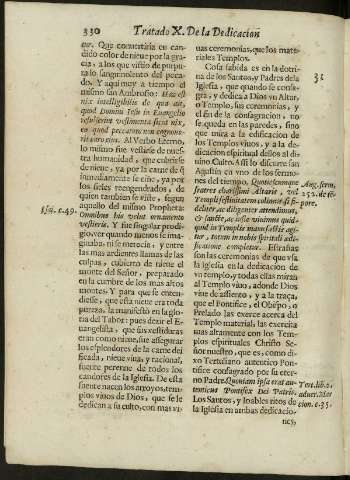 330 Tratado X. De la Dedicacion
tur. Que convertiria en can-
dido color de nieve por la gra-
cia, a los que vistiò de purpu-
ra lo sangrinolento del peca-
do. Y aqui muy a tiempo el
mismo san Ambrosio: Hæc est
nix intelligibilis de qua ait,
quod Domini Iesu in Evangelio
vestimenta sicut nix,
eo quod peccatum non cognove-
rit caro eius. Al Verbo Eterno,
lo mismo fue vestirse de nues-
tra humanidad, que cubrirse
de nieve, ya por la carne de q̃
inmediatamente se ciñe, ya por
los fieles reengendrados, de
quien tambien se viste, segun
aquello del mismo Propheta:
Omnibus his velut ornamento
vestieris. Y fue singular prodi-
gio, que quando menos se ima-
ginaba, ni se merecia, y entre
las mas ardientes llamas de las
culpas, cubierto de nieve el
monte del Señor, preparado
en la cumbre de los mas altos
montes. Y para que se enten-
diesse, que esta nieve era toda
pureza, la manifestò en la glo-
ria del Tabor: pues dezir el E-
vangelista, que sus vestiduras
eran como nieve, fue assegurar
los esplendores de la carne dei-
ficada, nieve viva, y racional,
fuente perenne de todos los
candores de la Iglesia. De esta
fuente nacen los arroyos, tem-
plos vivos de Dios, que se le
dedican a su culto, con mas vi-
Isai. c. 49.
uas ceremonias, que los mate-
riales Templos.
Cosa sabida es en la dotri-
na de los Santos, y Padres de la
Iglesia, que quando se consa-
gra, y dedica a Dios vn Altar,
o Templo, sus ceremonias, y
el fin de la consagracion, no
se queda en las paredes, sino
que mira a la edificacion de
los Templos vivos, y a la de-
dicacion espiritual dellos al di-
vino Culto. Assi lo discurre san
Agustin en vno de los sermo-
nes del tiempo. Quotiescunque
fratres charissimi Altaris, vel
Templi festivitatem colimus, si fi-
deliter, ac diligenter attendimus,
& sancte, ac iuste vivimus quid-
quid in Templis manufactis agi-
tur, totum in nobis spiritali ædi-
ficatione completur. Estrañas
son las ceremonias de que vsa
la Iglesia en la dedicacion de
vn templo, y todas ellas miran
al Templo vivo, adonde Dios
vive de assiento, y a la traça,
que el Pontifice, el Obispo, o
Prelado las exerce acerca del
Templo material, las exercita
mas altamente con los Tem-
plos espirituales Christo Se-
ñor nuestro, que es, como di-
xo Tertuliano autentico Pon-
tifice consagrado por su eter-
no Padre. Quoniam ipse erat au-
tenticus Pontifex Dei Patris.
Los Santos, y loables ritos de
la Iglesia en ambas dedicacio-
nes,
31
Aug. serm.
252. de tē-
pore.
Tert. lib. 4.
advers. Mar
cion. c. 35.